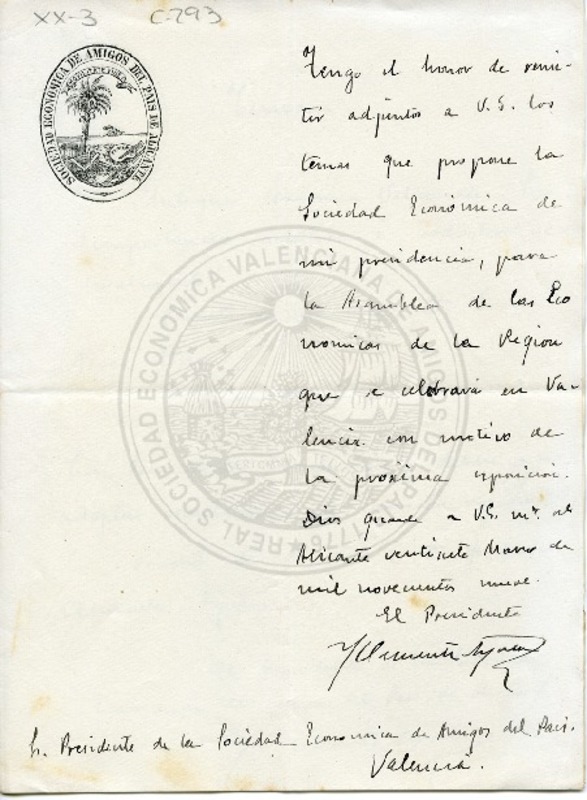 XX-3 C-793
SOCIEDAD ECONÓMICA DE AMIGOS DEL PAIS DE ALICANTE
Tengo el honor de remi-
tir adjuntos a V.S. los
temas que propone la
Sociedad Económica de
mi presidencia, para
la Asamblea de las Eco
nomicas de la Region
que se celebrará en Va-
lencia con motivo de
la próxima exposicion.
Dios guarde a V.S. ms. as.
Alicante ventisiete Marzo de
mil novecientos nueve.
El Presidente
Clemente
Sr. Presidente de la Sociedad Economica de Amigos del Pais.
Valencia.
REAL SOCIEDAD ECONOMICA VALENCIANA DE AMIGOS DEL PAIS 1776